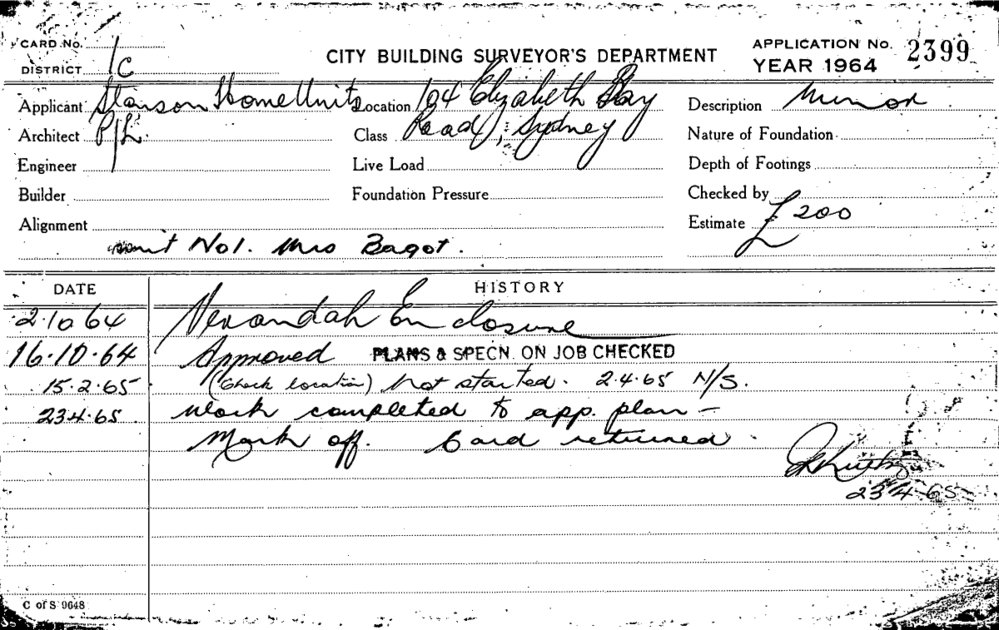 CARD No.
DISTRICT 1C
CITY BUILDING SURVEYOR'S DEPARTMENT
APPLICATION No. 2399
YEAR 1964
Applicant Stanson Home Units Location 104 Elizabeth Bay Description Minor
Architect P/L. Class Road, Sydney Nature of Foundation
Engineer Live Load Depth of Footings
Builder Foundation Pressure Checked by
Alignment Estimate £200
unit No1. Mrs Bagot.
DATE HISTORY
2.10 64 Verandah Enclosure
16.10.64 Approved PLANS & SPECN. ON JOB CHECKED
15.2.65 (Check location) Not started. 2.4.65 N/S.
23.4.65 Work completed to app. plan -
Mark off. Card returned.
23.4.65
C of S 9648